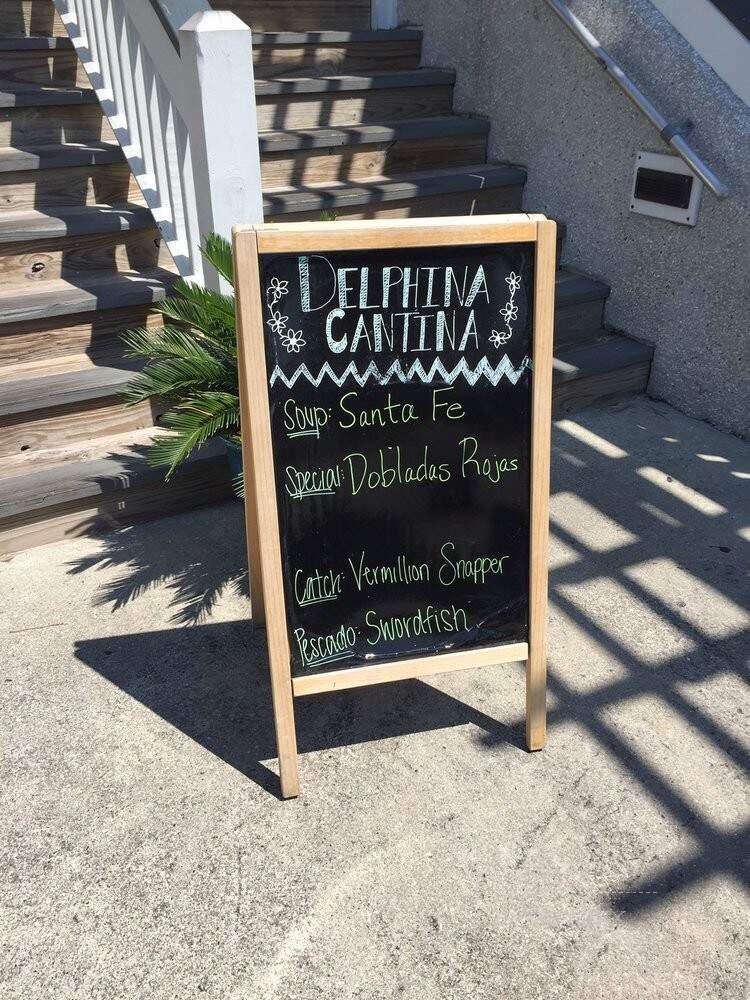 DELPHINA
CANTINA
Soup: Santa Fe
Special: Dobladas Rojas
Catch: Vermillion Snapper
Pescado: Swordfish